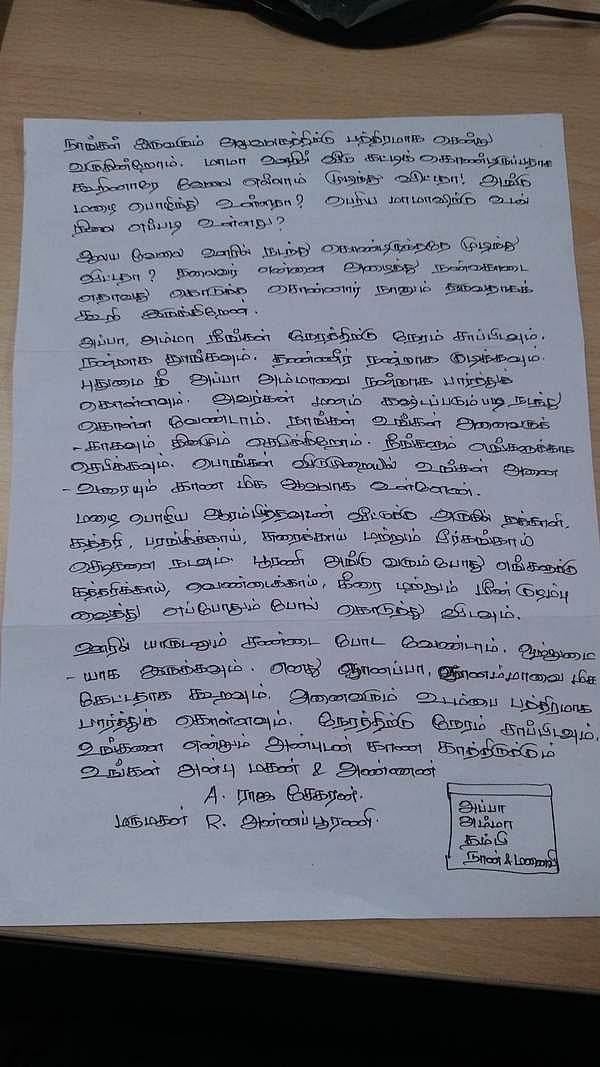 நாங்கள் இருவரும் அலுவலகத்திற்கு பத்திரமாக சென்று
வருகின்றோம். மாமா ஊரில் வீடு கட்டிக் கொண்டிருப்பதாக
கூறினாரே வேலை எல்லாம் முடிந்து விட்டதா! அங்கு
மழை பொழிந்து உள்ளதா? பெரிய மாமாவிற்கு உடல்
நிலை எப்படி உள்ளது?
ஆலய வேலை ஊரில் நடந்து கொண்டிருந்ததே முடிந்து
விட்டதா? தலைவர் என்னை அழைத்து நன்கொடை
ஏதாவது கொடுக்க சொன்னார் நானும் தருவதாகக்
கூறி இருக்கிறேன்.
அப்பா, அம்மா நீங்கள் நேரத்திற்கு நேரம் சாப்பிடவும்.
நன்றாக தூங்கவும். தண்ணீர் நன்றாக குடிக்கவும்.
புதுமை நீ அப்பா அம்மாவை நன்றாக பார்த்துக்
கொள்ளவும். அவர்கள் மனம் கஷ்டப்படும்படி நடந்து
கொள்ள வேண்டாம். நாங்கள் உங்கள் அனைவருக்
-காகவும் தினமும் ஜெபிக்கிறோம். நீங்களும் எங்களுக்காக
ஜெபிக்கவும். பொங்கல் விடுமுறையில் உங்கள் அனை
-வரையும் காண மிக ஆவலாக உள்ளேன்.
மழை பொழிய ஆரம்பித்தவுடன் வீட்டுக்கு அருகில் தக்காளி,
கத்தரி, பரங்கிக்காய், சுரைக்காய் மற்றும் பீர்க்கங்காய்
செடிகளை நடவும். பூரணி அங்கு வரும்போது எங்களுக்கு
கத்தரிக்காய், வெண்டைக்காய், கீரை மற்றும் மீன் குழம்பு
வைத்து எப்போதும் போல் கொடுத்து விடவும்.
ஊரில் யாருடனும் சண்டை போட வேண்டாம். ஒற்றுமை
-யாக இருக்கவும். எனது ஞானப்பா, ஞானம்மாவை மிக
கேட்டதாக கூறவும். அனைவரும் உடம்பை பத்திரமாக
பார்த்துக் கொள்ளவும். நேரத்திற்கு நேரம் சாப்பிடவும்.
உங்களை என்றும் அன்புடன் காண காத்திருக்கும்
உங்கள் அன்பு மகன் & அண்ணன்
A. ராஜ சேகரன்.
மருமகள் R. அன்னப்பூரணி.
அப்பா
அம்மா
தம்பி
நான் & மனைவி